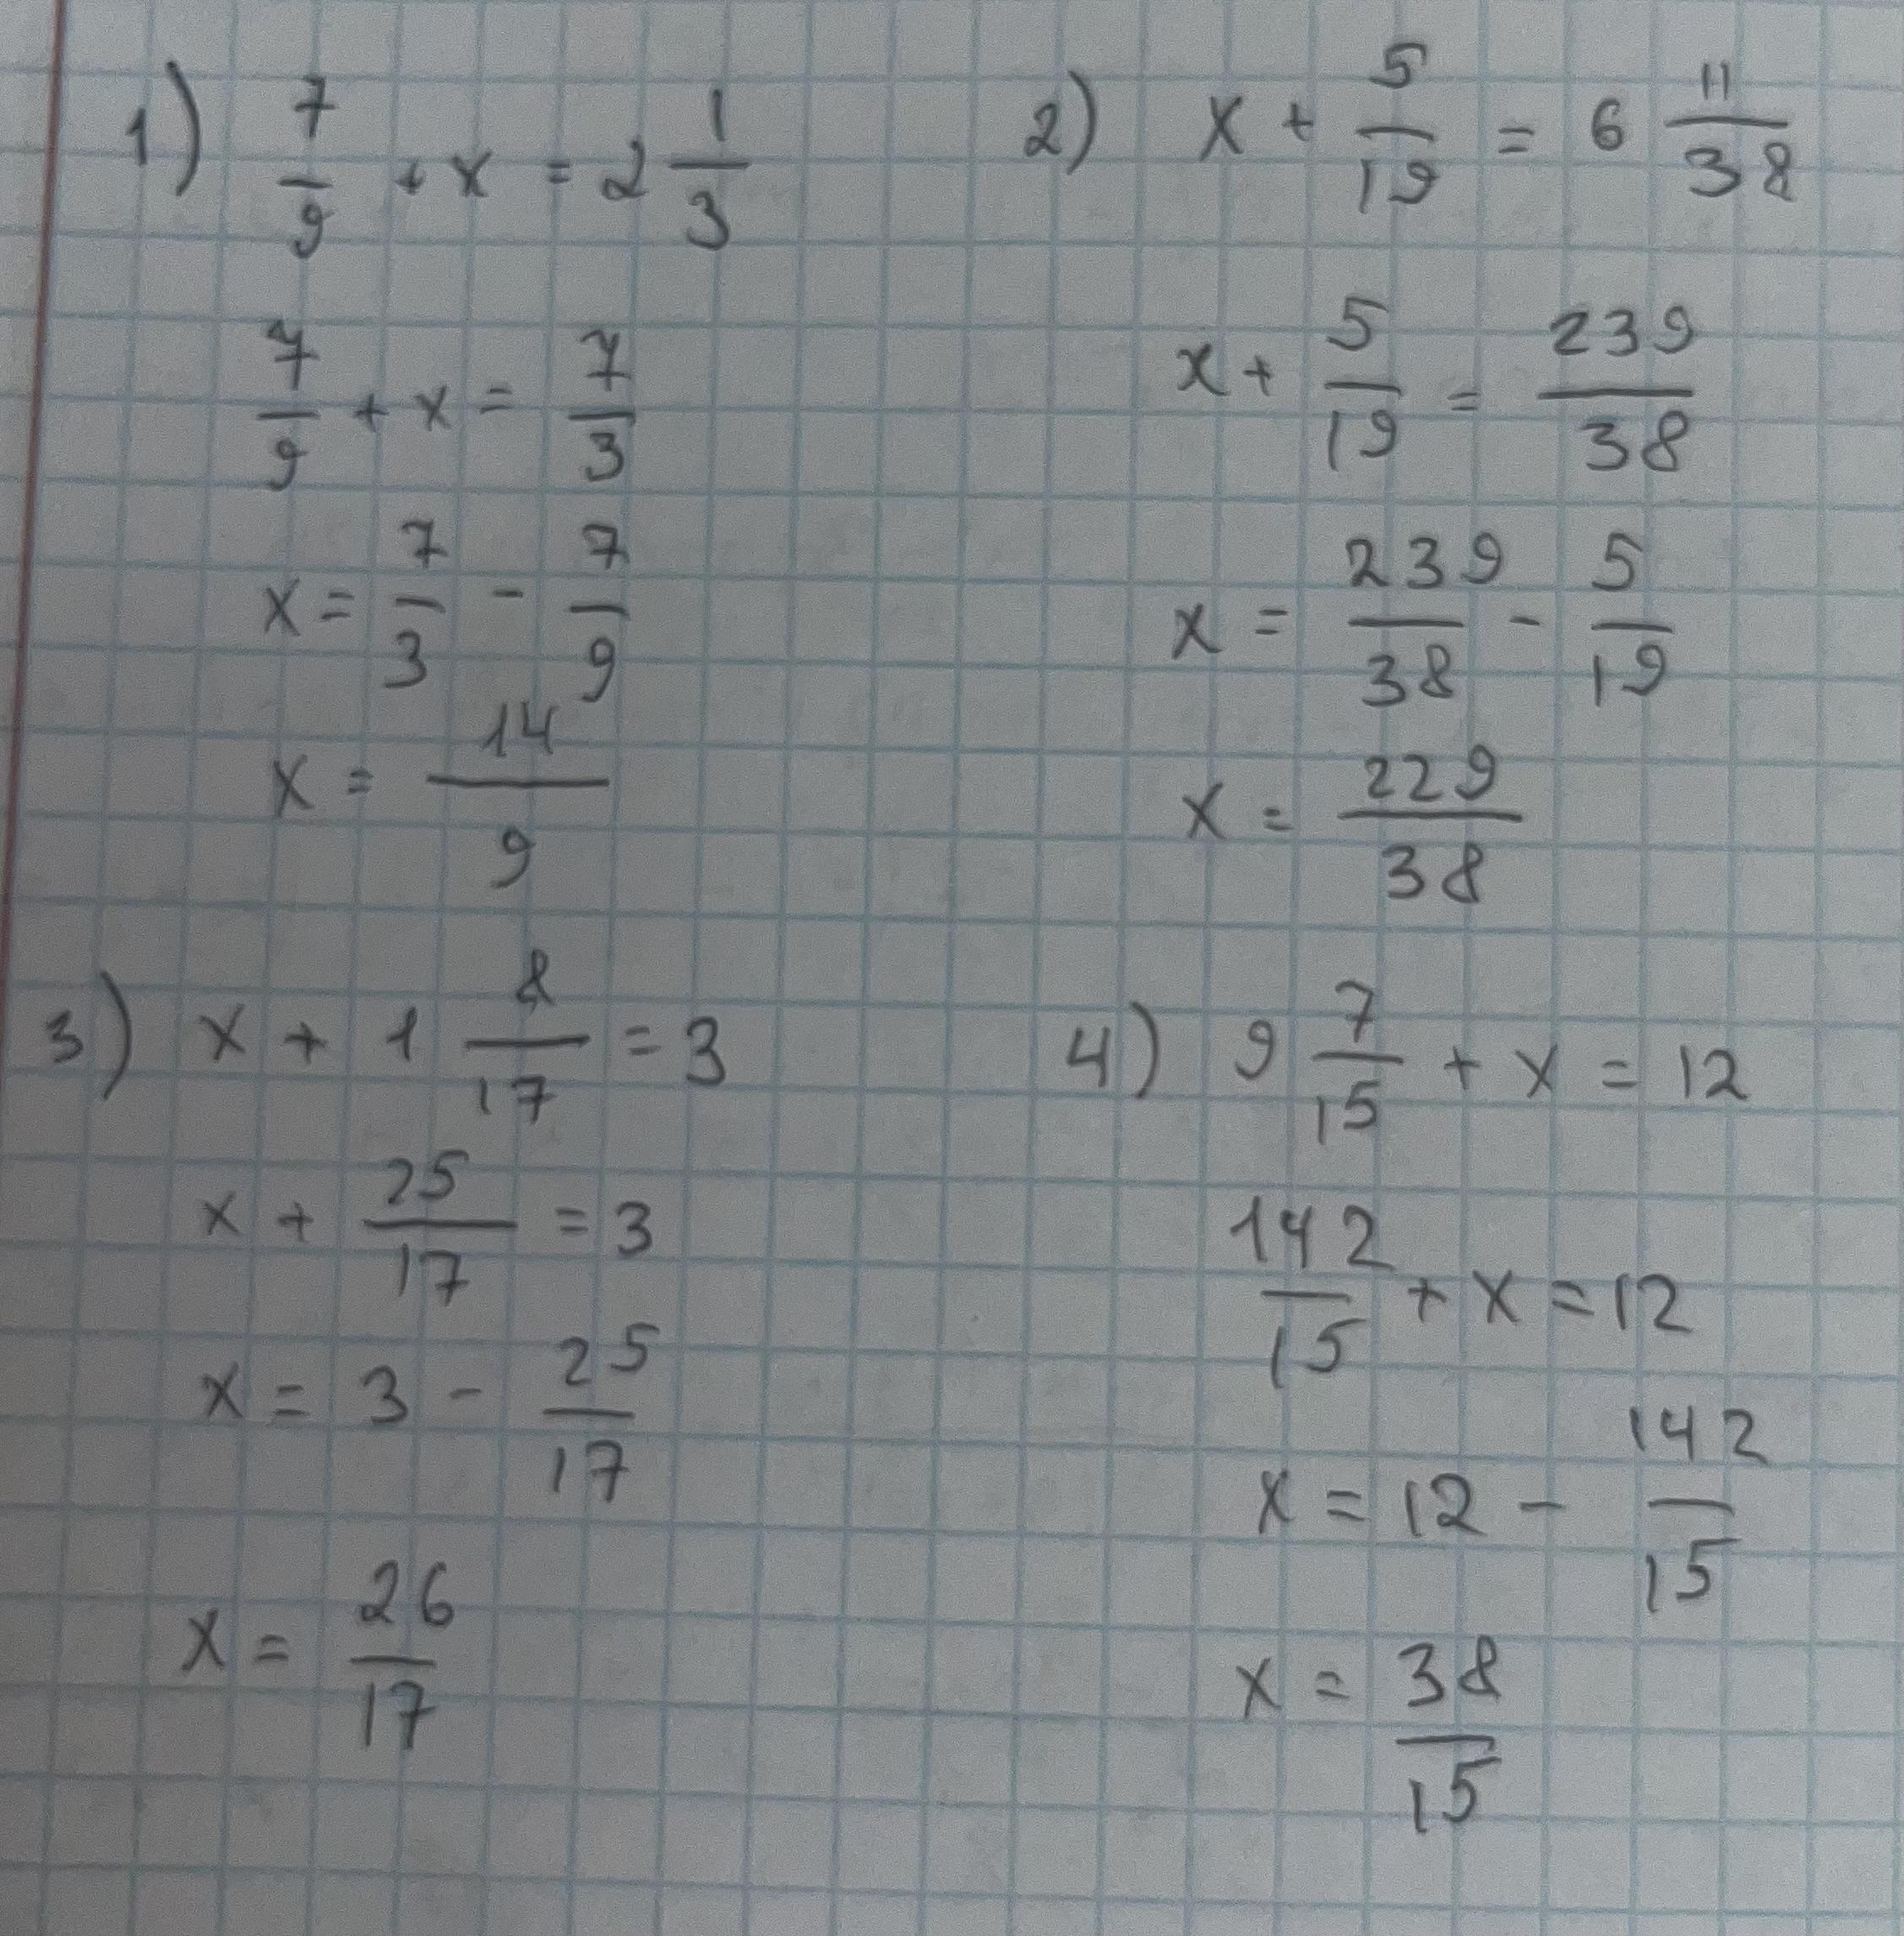 1) 7/9 + x = 2 1/3
7/9 + x = 7/3
x = 7/3 - 7/9
x = 14/9
2) x + 5/19 = 6 11/38
x + 5/19 = 239/38
x = 239/38 - 5/19
x = 229/38
3) x + 1 8/17 = 3
x + 25/17 = 3
x = 3 - 25/17
x = 26/17
4) 9 7/15 + x = 12
142/15 + x = 12
x = 12 - 142/15
x = 38/15